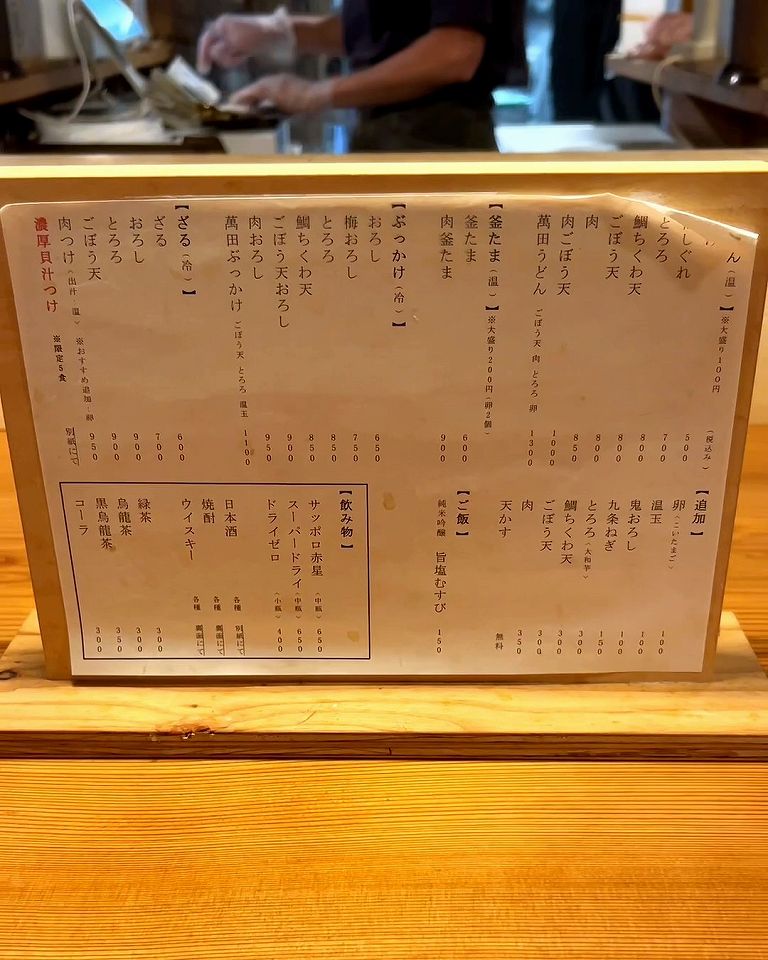 ん（温）】※大盛り100円 （税込み）
500
しぐれ 700
とろろ 800
鯛ちくわ天 800
ごぼう天 800
肉 850
肉ごぼう天 1000
萬田うどん ごぼう天 肉 とろろ 卵 1300
【釜たま（温）】※大盛り200円（卵2個）
釜たま 600
肉釜たま 900
【ぶっかけ（冷）】
おろし 650
梅おろし 750
とろろ 850
鯛ちくわ天 850
ごぼう天おろし 900
肉おろし 950
萬田ぶっかけ ごぼう天 とろろ 温玉 1100
【ざる（冷）】
ざる 600
おろし 700
とろろ 900
ごぼう天 900
肉つけ（出汁・温）※おすすめ追加・卵 950
濃厚貝汁つけ ※限定5食 別紙にて
【追加】
卵（こいたまご） 100
温玉 100
鬼おろし 100
九条ねぎ 150
とろろ（大和芋） 300
鯛ちくわ天 300
ごぼう天 300
肉 350
天かす 無料
【ご飯】
純米吟醸 旨塩むすび 150
【飲み物】
サッポロ赤星（中瓶） 650
スーパードライ（中瓶） 650
ドライゼロ（小瓶） 400
日本酒 各種 別紙にて
焼酎 各種 裏面にて
ウイスキー 各種 裏面にて
緑茶 300
烏龍茶 300
黒烏龍茶 350
コーラ 300